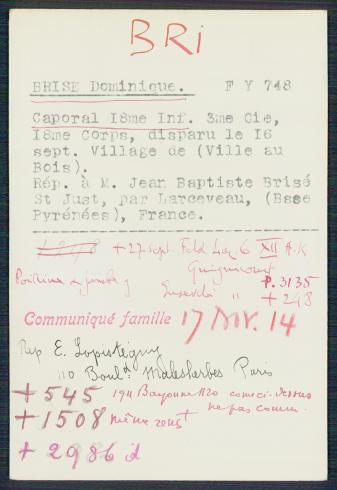 BRI
BRISE Dominique. F Y 748
Caporal I8me Inf. 3me Cie,
I8me Corps, disparu le I6
sept. Village de (Ville au
Bois).
Rép. à M. Jean Baptiste Brisé
St Just, par Larceveau, (Bsse
Pyrénées), France.
+ 298 + 27 sept. Feld Laz 6 XII A.K
Guignicourt
P. 3135
Poitrine & jambe g " + 298
Communiqué famille 17 NOV. 14
Rep E. Lopistéguy
110 Boul^d Malesherbes Paris
+ 545 1911 Bayonne 1120 comme ci-dessus
+ 1508 même rens^t ne pas comm.
+ 2986 id